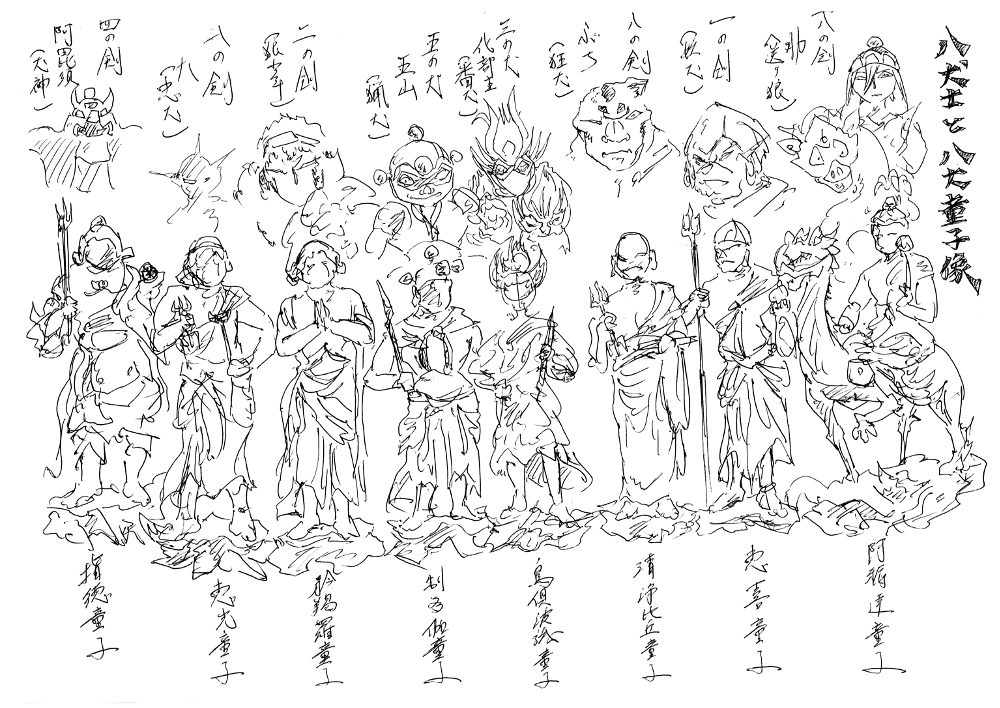 八犬士と八大童子像
八の剣
助
(送り狼)
一の剣
八の剣
ぶち
(狂犬)
三の犬
(番犬)
五の犬
玉山
(猟犬)
二の剣
八の剣
九
(忠犬)
四の剣
阿毘須
(犬神)
阿耨達童子
恵喜童子
清浄比丘童子
烏倶婆誐童子
制多伽童子
矜羯羅童子
恵光童子
指徳童子